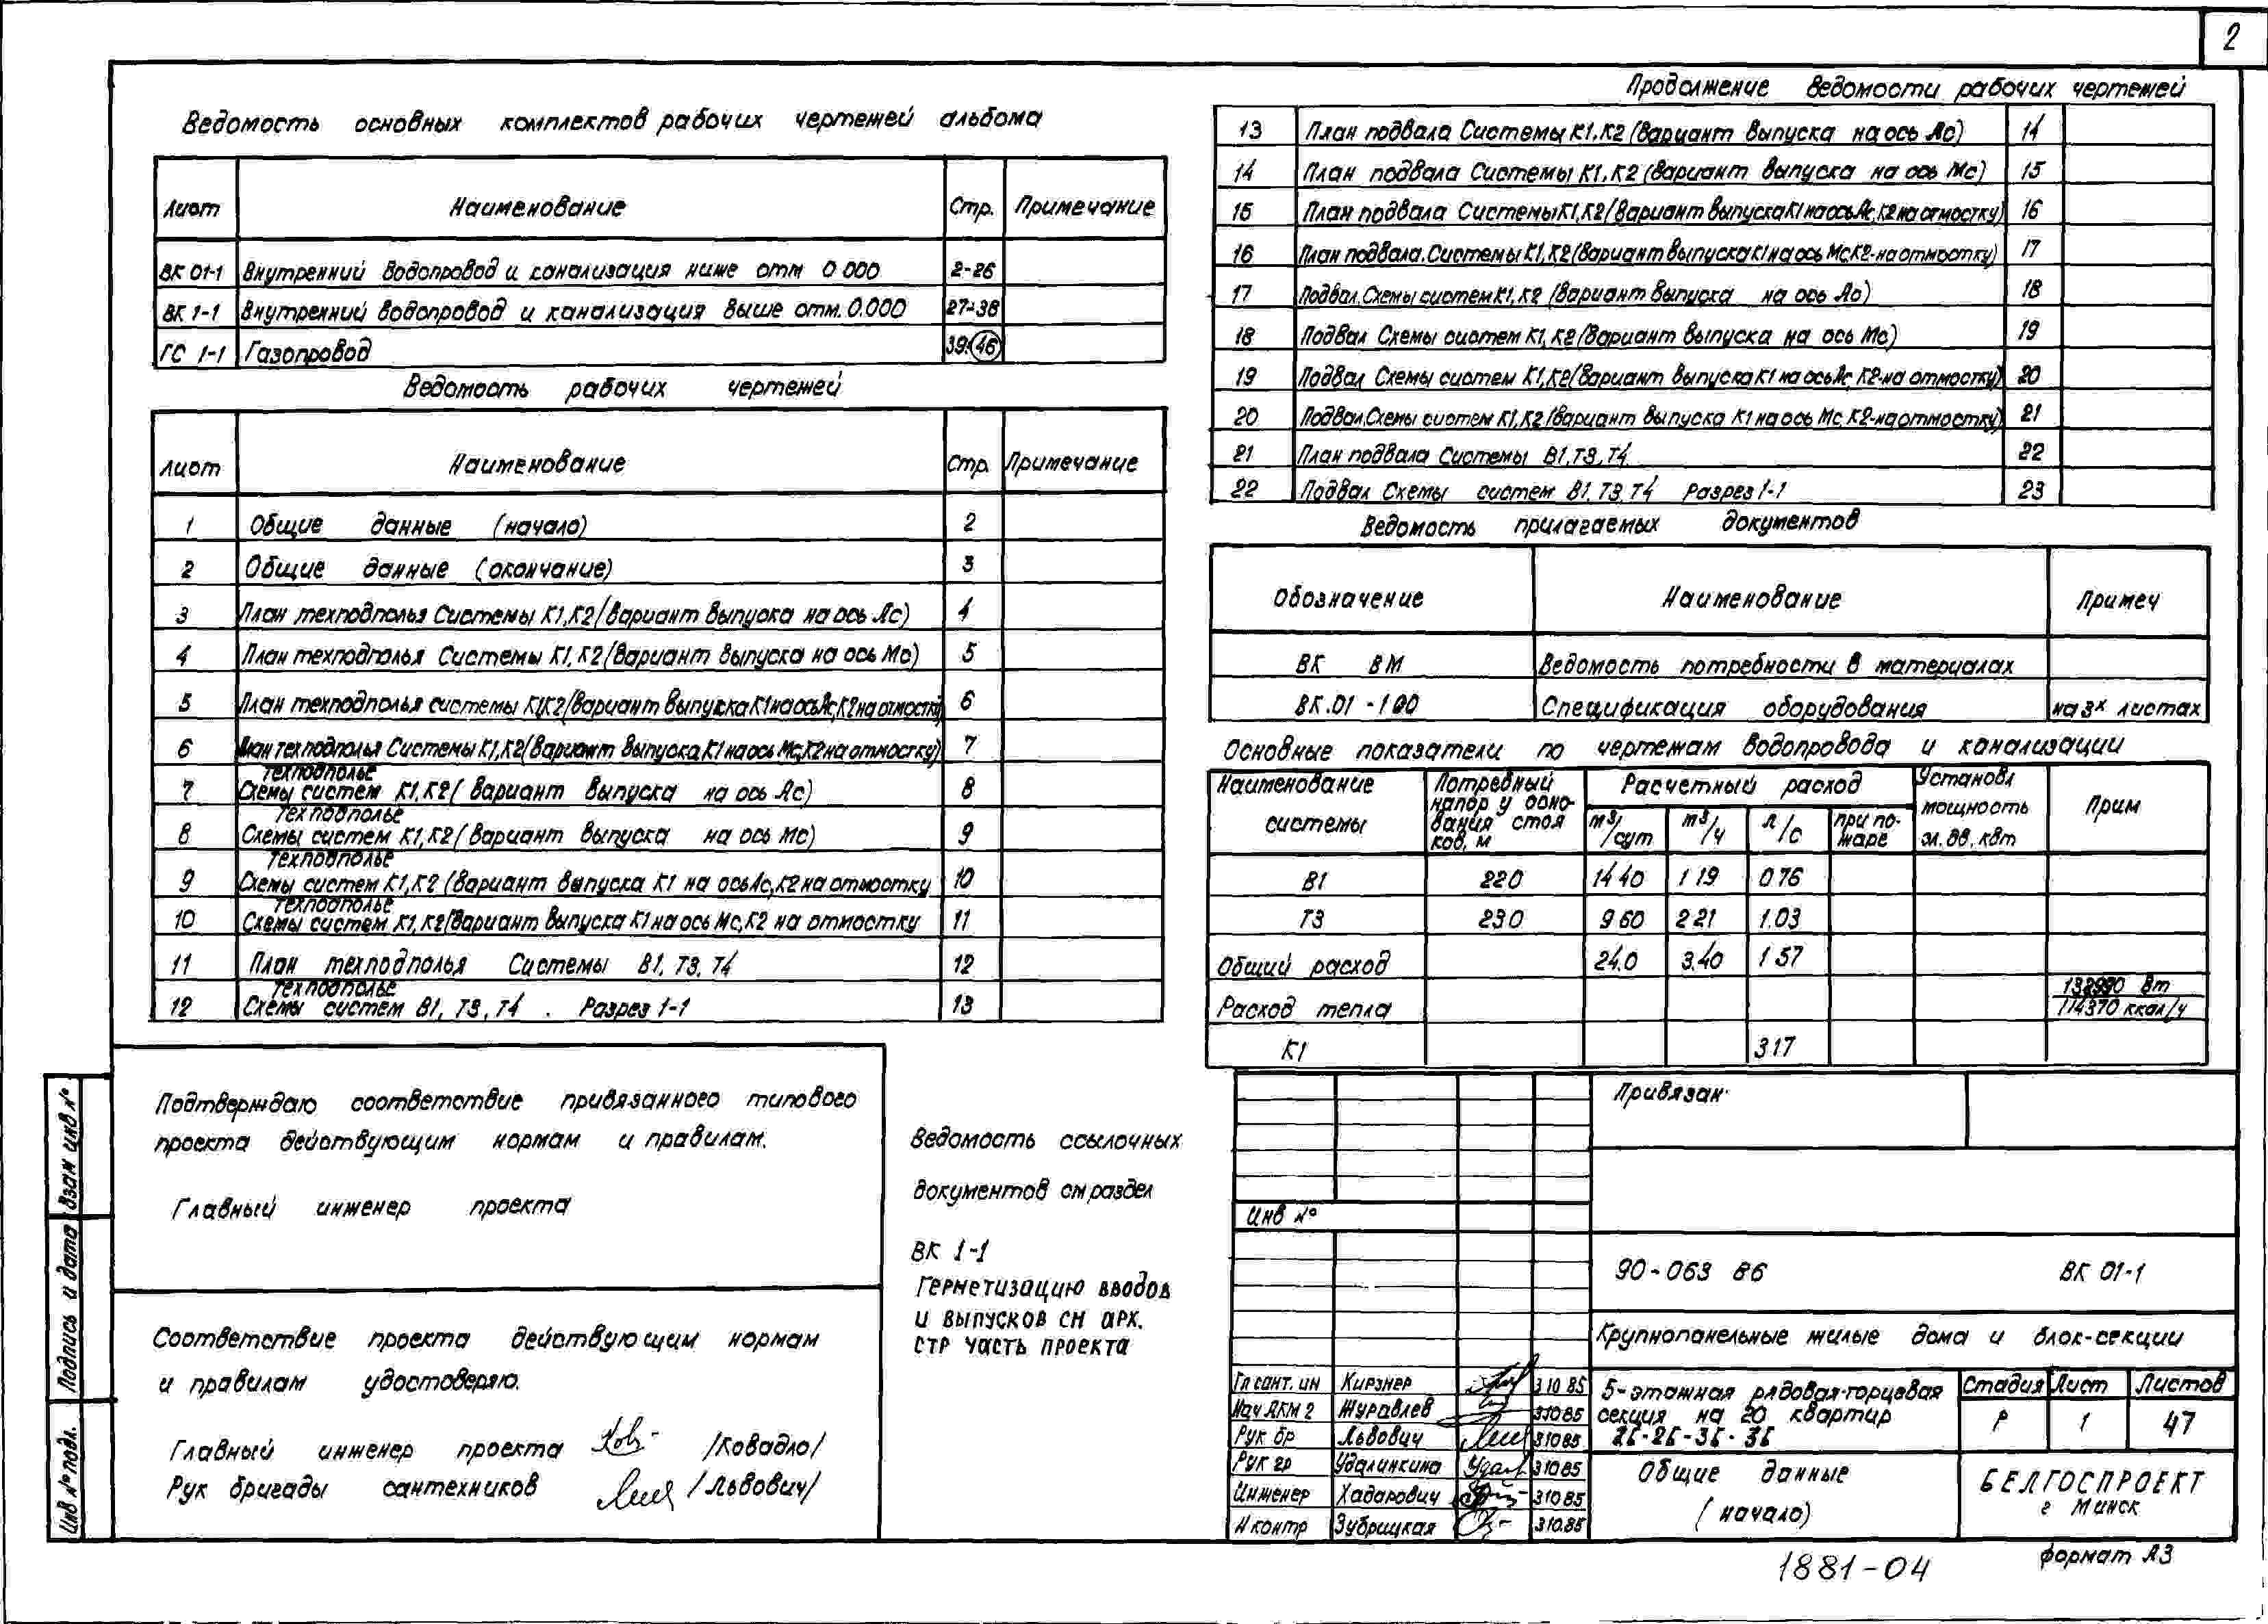 2
Ведомость основных комплектов рабочих чертежей альбома
Лист Наименование Стр. Примечание
ВК 01-1 Внутренний водопровод и канализация ниже отм 0 000 2-26
ВК 1-1 Внутренний водопровод и канализация выше отм. 0.000 27-38
ГС 1-1 Газопровод 39-46
Ведомость рабочих чертежей
Лист Наименование Стр. Примечание
1 Общие данные (начало) 2
2 Общие данные (окончание) 3
3 План техподполья Системы К1,К2 (вариант выпуска на ось Ас) 4
4 План техподполья Системы К1,К2 (вариант выпуска на ось Мс) 5
5 План техподполья системы К1,К2 (вариант выпуска К1 на ось Ас, К2 на отмостку) 6
6 План техподполья Системы К1,К2 (вариант выпуска К1 на ось Мс, К2 на отмостку) 7
техподполье
7 Схемы систем К1,К2 (вариант выпуска на ось Ас) 8
техподполье
8 Схемы систем К1,К2 (вариант выпуска на ось Мс) 9
техподполье
9 Схемы систем К1,К2 (вариант выпуска К1 на ось Ас, К2 на отмостку 10
техподполье
10 Схемы систем К1,К2 (вариант выпуска К1 на ось Мс, К2 на отмостку 11
11 План техподполья Системы В1, Т3, Т4 12
техподполье
12 Схемы систем В1, Т3, Т4 . Разрез 1-1 13
Продолжение ведомости рабочих чертежей
13 План подвала Системы К1,К2 (вариант выпуска на ось Ас) 14
14 План подвала Системы К1,К2 (вариант выпуска на ось Мс) 15
15 План подвала Системы К1,К2 (вариант выпуска К1 на ось Ас, К2 на отмостку) 16
16 План подвала. Системы К1,К2 (вариант выпуска К1 на ось Мс К2-на отмостку) 17
17 Подвал. Схемы систем К1,К2 (вариант выпуска на ось Ас) 18
18 Подвал Схемы систем К1,К2 (вариант выпуска на ось Мс) 19
19 Подвал Схемы систем К1,К2 (вариант выпуска К1 на ось Ас, К2-на отмостку) 20
20 Подвал. Схемы систем К1,К2 (вариант выпуска К1 на ось Мс К2-на отмостку) 21
21 План подвала Системы В1, Т3, Т4. 22
22 Подвал Схемы систем В1, Т3, Т4 Разрез 1-1 23
Ведомость прилагаемых документов
Обозначение Наименование Примеч
ВК ВМ Ведомость потребности в материалах
ВК.01-1 Спецификация оборудования на 3х листах
Основные показатели по чертежам водопровода и канализации
Наименование системы Потребный напор у основания стояков, м Расчетный расход Установл мощность эл. дв. квт Прим
м³/сут м³/ч л/с при пожаре
В1 220 14 40 1 19 0 76
Т3 230 9 60 2 21 1.03
Общий расход 24.0 3.40 1 57
Расход тепла Вт
114370 ккал/ч
К1 3 17
Подтверждаю соответствие привязанного типового
проекта действующим нормам и правилам.
Главный инженер проекта
Соответствие проекта действующим нормам
и правилам удостоверяю.
Главный инженер проекта /Ковадло/
Рук бригады сантехников /Львович/
Ведомость ссылочных
документов см раздел
ВК 1-1
Герметизацию вводов
и выпусков см арх.
стр часть проекта
Взам инв №
Подпись и дата
Инв № подл.
Привязан·
Инв №
90-063 86 ВК 01-1
Крупнопанельные жилые дома и блок-секции
Гл сант. ин Кирзнер 3 10 85
Нач АКМ 2 Журавлев 3.10 85
Рук бр Львович 3 10 85
Рук гр Удалинкина 3 10 85
Инженер Хадарович 3 10 85
Н контр Зубрицкая 3 10.85
5-этажная рядовая-торцевая
секция на 20 квартир
2Б-2Б-3Б-3Б
Стадия Лист Листов
Р 1 47
Общие данные
(начало)
БЕЛГОСПРОЕКТ
г Минск
1881-04
формат А3